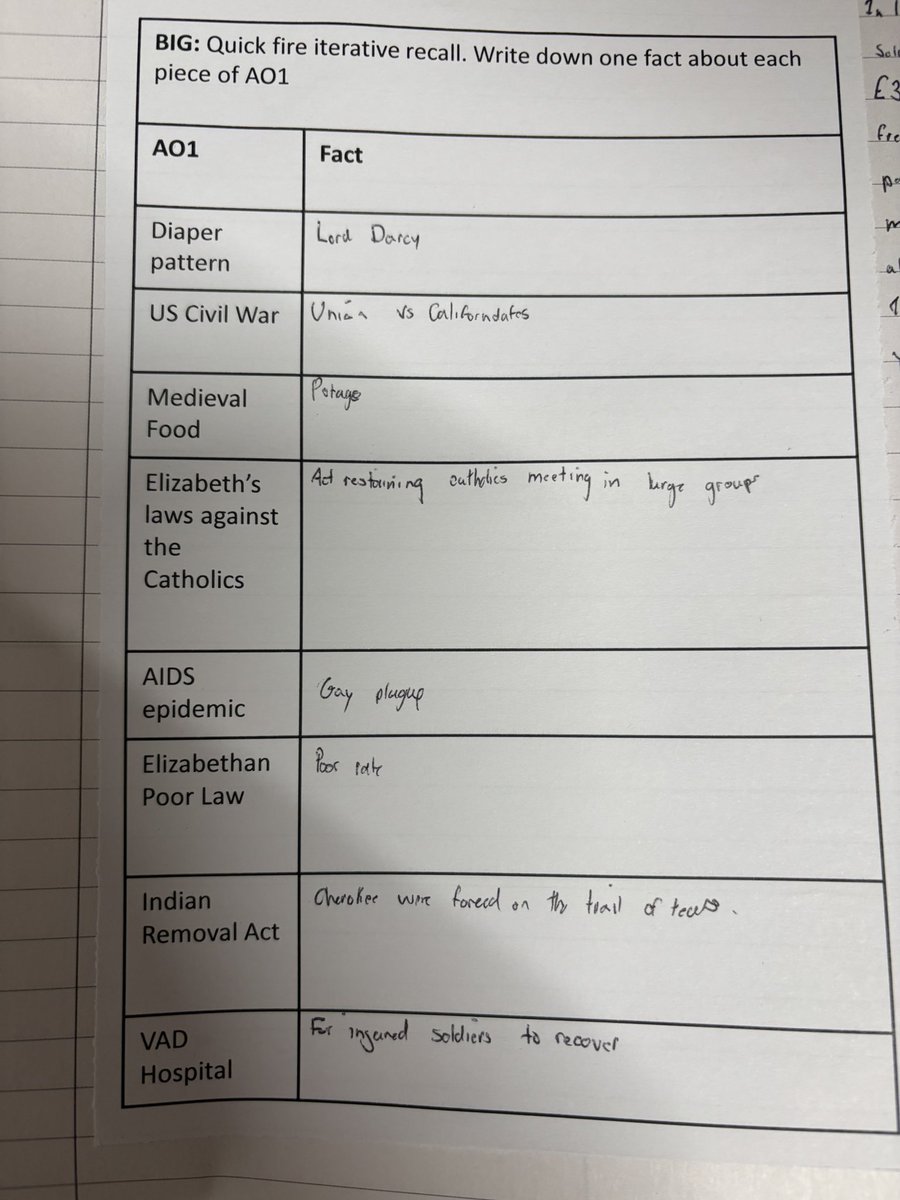 BIG: Quick fire iterative recall. Write down one fact about each
piece of AO1
AO1
Fact
Diaper
pattern
Lord Darcy
US Civil War
Union vs Californdates
Medieval
Food
Potage
Elizabeth's
laws against
the
Catholics
Act restaining catholics meeting in large groups
AIDS
epidemic
Gay plague
Elizabethan
Poor Law
Poor rate
Indian
Removal Act
Cherokee were forced on the trail of tears.
VAD
Hospital
For injured soldiers to recover
In
£3